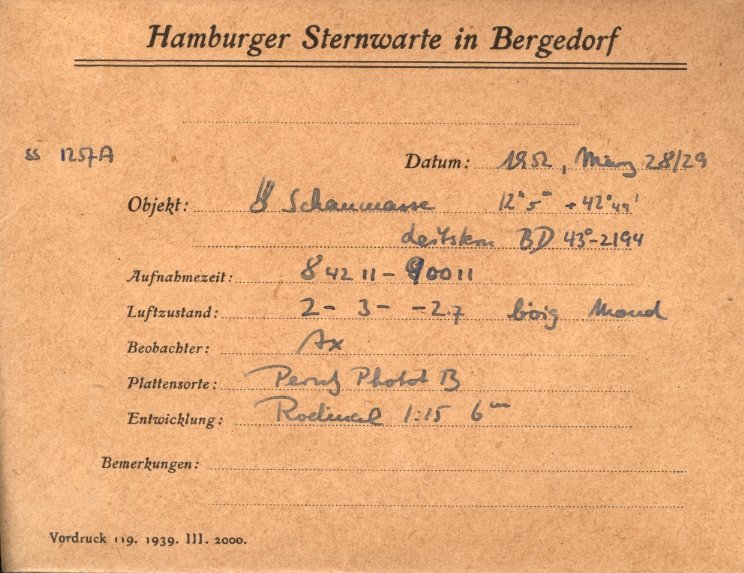 Hamburger Sternwarte in Bergedorf
ss 1257A
Datum: 1952, März 28/29
Objekt: Schaumasse 12ʰ 5ᵐ +42°49'
Leitstern BD 43°-2194
Aufnahmezeit: 8 42 11 - 9 00 11
Luftzustand: 2- 3- -2.7 böig Mond
Beobachter: Ax
Plattensorte: Perutz Photot B
Entwicklung: Rodinal 1:15 6ᵐ
Bemerkungen:
Vordruck 119. 1939. III. 2000.